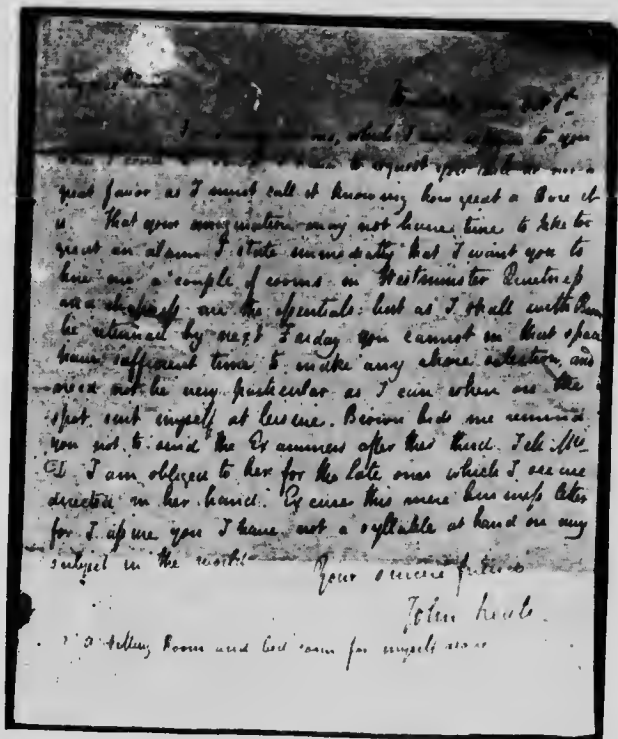 My dear
Winchester
For reasons, which I will explain to you
to request you to do me a
great favor as I must call it knowing how great a Bore it
is. That your imagination may not have time to take too
great an alarm I state immediately that I want you to
hire me a couple of rooms in Westminster Quietness
and cheapness are the essentials: but as I shall with Brown
be returned by next Friday you cannot in that space
have sufficient time to make any choice selection, and
need not be very particular as I can when on the
spot suit myself at leisure. Brown bids me remind
you not to send the Examiners after the third. Tell Mrs
D. I am obliged to her for the late ones which I see are
directed in her hand. Excuse this mere business letter
for I assure you I have not a syllable at hand on any
subject in the world
Your sincere friend
John Keats.
a sitting Room and bed room for myself alone